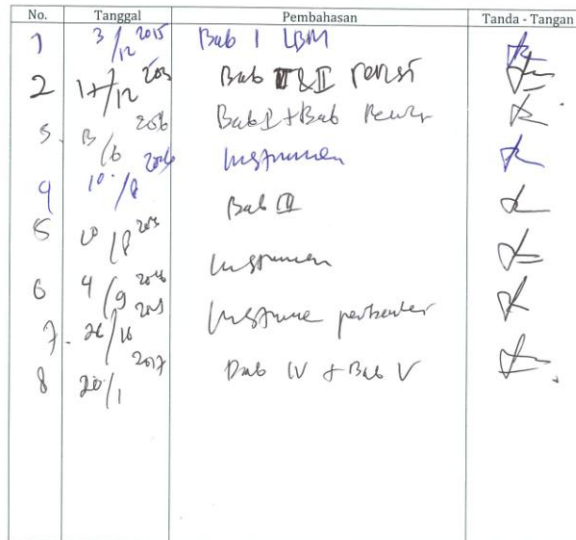 No. Tanggal Pembahasan Tanda - Tangan
1 3/12 2015 Bab I LBM
2 17/12 Bab I & II revisi
3 13/6 2016 Bab I + Bab
4 10/8 2016 Instrumen
5 Bab III
6 4/9 2016 Instrumen
7. Instrumen
8 20/1 2017 Bab IV + Bab V